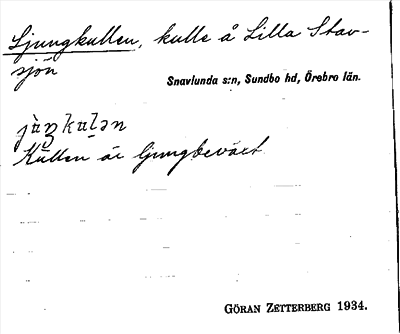 Ljungkullen, kulle å Lilla Stav-
sjön
Snavlunda s:n, Sundbo hd, Örebro län.
Kullen är ljungbeväxt
GÖRAN ZETTERBERG 1934.